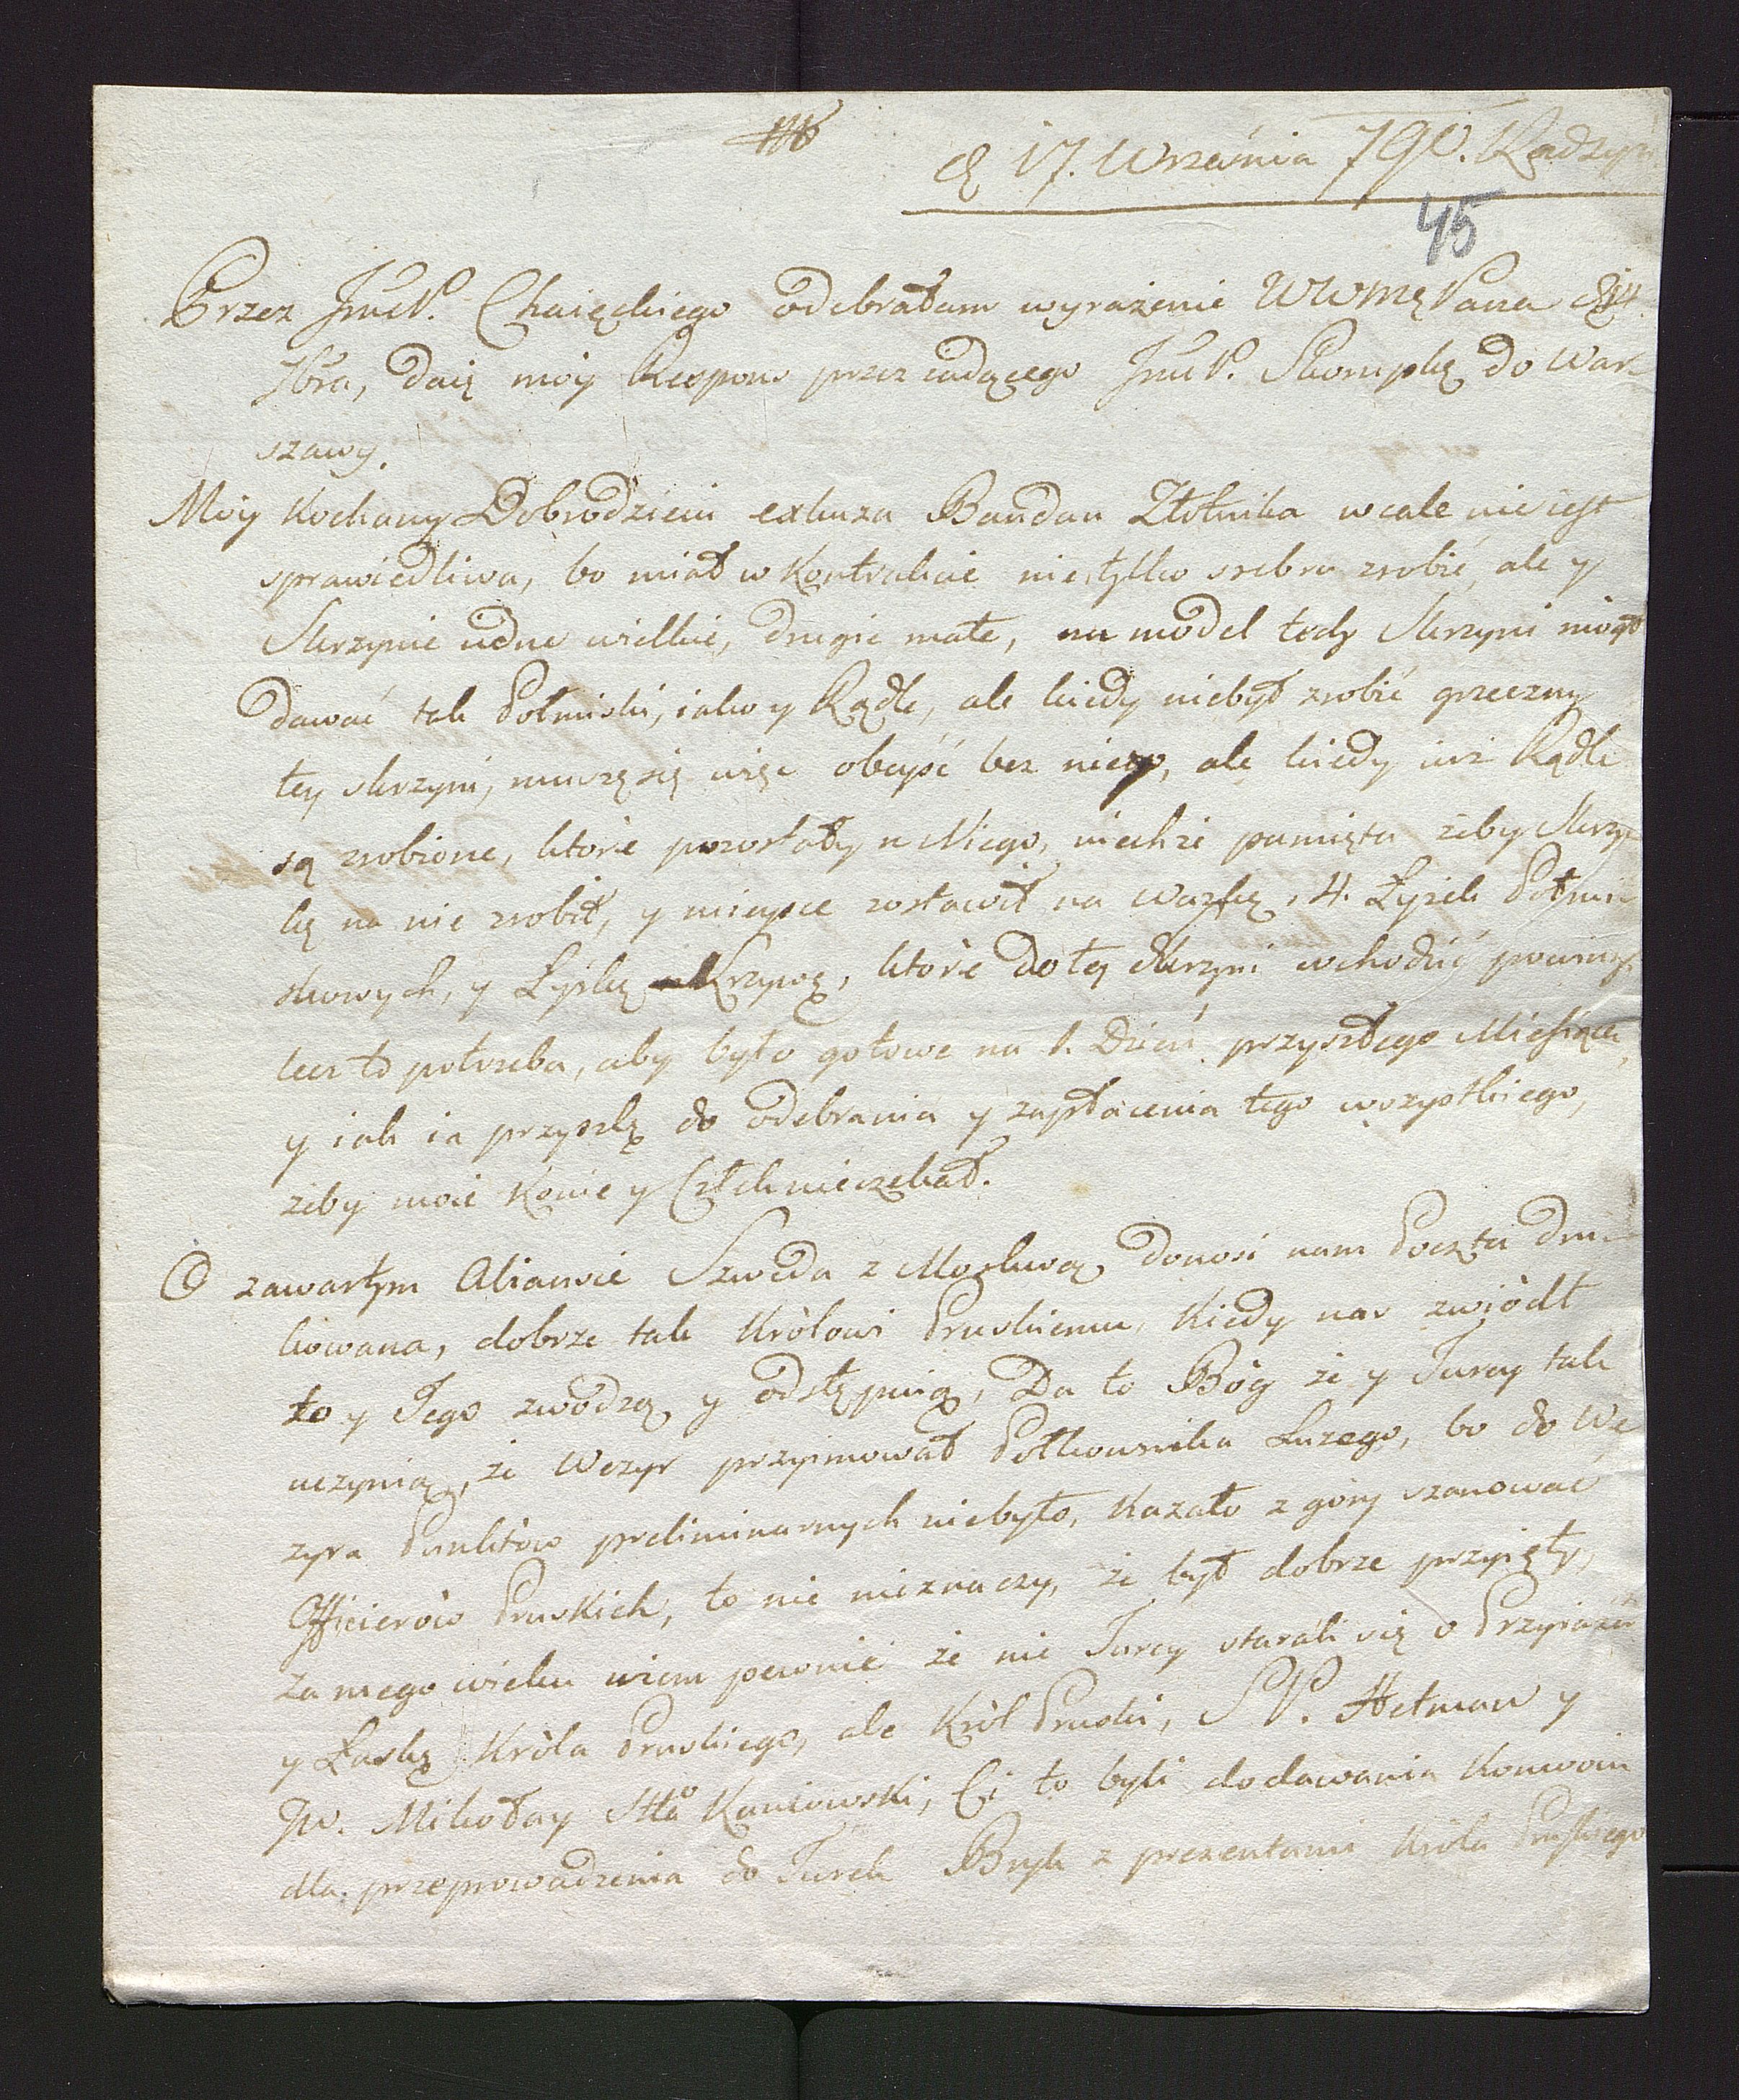 d. 17. Września 790. Radzyn
45
Przez JmcP. Chaięckiego odebrałam wyrażenie WWMę Pana d. 14.
7bra, daię móy Respons przez iadącego JmcP. Skompskę do War-
szawy.
Móy Kochany Dobrodzieiu exkuza Bandau Złotnika wcale nie iest
sprawiedliwa, bo miał w Kontrakcie nie tylko srebra zrobić, ale y
Skrzynie iedne wielkie, drugie małe, na model tedy Skrzyni mógł
dawać tak Połmiski, iako y Rądle, ale kiedy niebył zrobić grzeczny
tey skrzyni, muszę się więc obeyść bez niey, ale kiedy iuż Rądle
są zrobione, które pozostały u Niego, niechże pamięta żeby Skrzyn-
kę na nie zrobił, y mieysce zostawił na Wazkę, 4. Łyżek Połmi-
skowych, y Łyżkę Krzywą, które do tej Skrzyni wchodzić powinny.
lecz to potrzeba, aby było gotowe na 1. Dzień przyszłego Miesiąca,
y iak ia przyszlę do odebrania y zapłacenia tego wszystkiego,
żeby moie Konie y Człek nieczekał.
O zawartym Aliansie Szweda z Moskwą donosi nam Poczta dru-
kowana, dobrze tak Królowi Pruskiemu, Kiedy nas zwiódł
to y Jego zwodzą y odstępuią, Da to Bóg że y Turcy tak
uczynią, że Wezyr przyimował Połkownika Luzego, bo do We-
zyra Punktów preliminarnych niebyło, Kazało z góry szanować
Officierów Pruskich, to nic nieznaczy, że był dobrze przyięty,
za mego wieku wiem pewnie że nie Turcy starali się o Przyiaźń
y Łaskę Króla Pruskiego, ale Król Pruski, SP. Hetman y
JW. Mikołay Stta Kaniowski, Ci to byli do dawania Konwoiu
dla przeprowadzenia do Turek Bryk z prezentami Króla Pruskiego